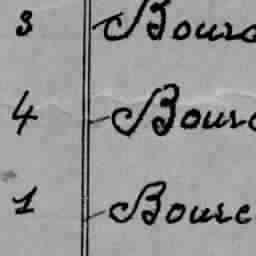 3 Bours
4 Bours
1 Bourc